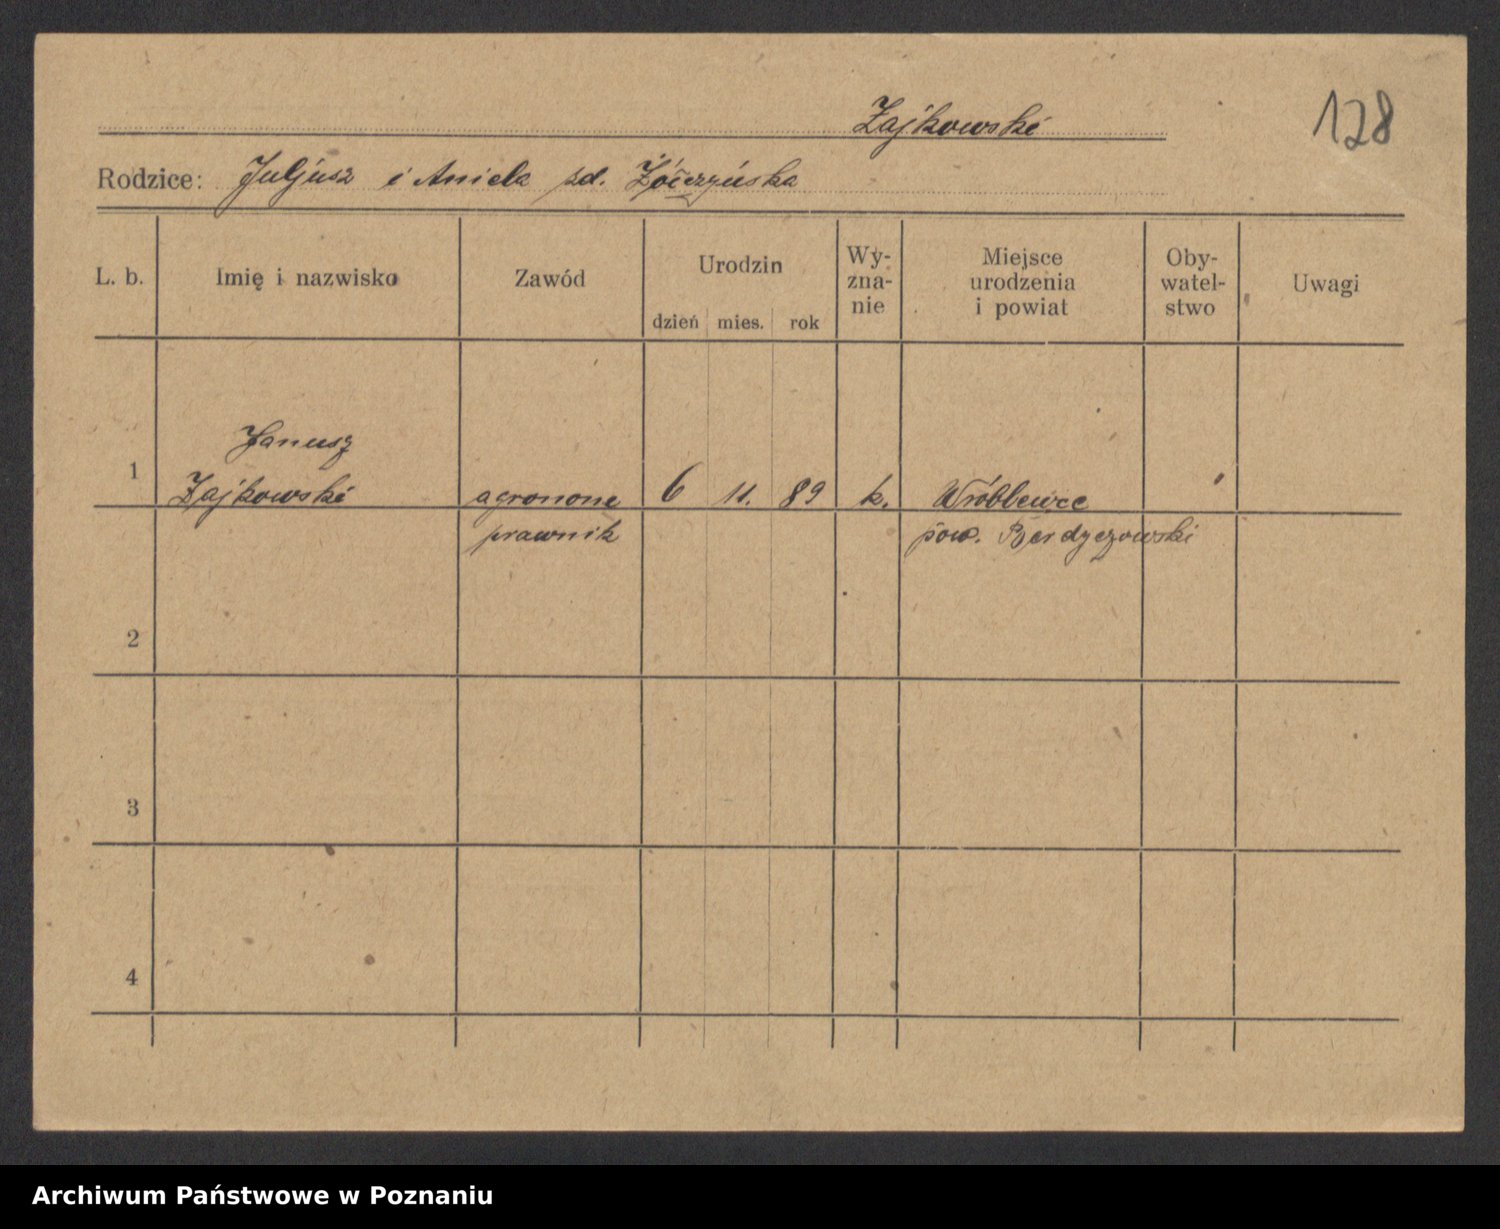 128
Zajkowski
Rodzice: Juljusz i Aniela zd.
L. b. Imię i nazwisko Zawód Urodzin dzień mies. rok Wy-zna-nie Miejsce urodzenia i powiat Oby-watel-stwo Uwagi
Janusz
1 Zajkowski agronom 6 11. 89 k. Wróblewce
prawnik pow. Berdyczowski
2
3
4
Archiwum Państwowe w Poznaniu